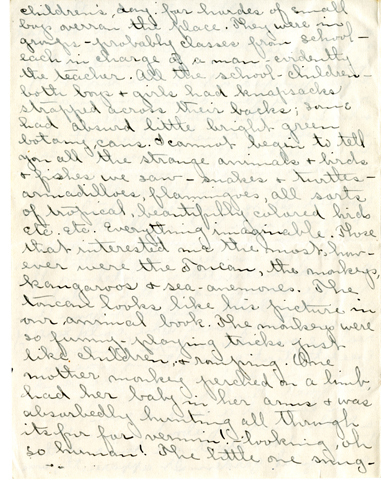 children's day, for hordes of small
boys overran the place. They were in
groups - probably classes from school -
each in charge of a man - evidently
the teacher. All the school-children -
both boys & girls had knapsacks
strapped across their backs; some
had absurd little bright green
botany cans. I cannot begin to tell
you all the strange animals & birds
& fishes we saw - snakes & turtles -
armadilloes, flamingoes, all sorts
of tropical, beautifully colored birds
etc. etc. Everything imaginable. Those
that interested me the most, how-
ever were the Toucan, the monkeys,
kangaroos & sea-anemones. The
toucan looks like his picture in
our animal book. The monkeys were
so funny - playing tricks just
like children, & romping. One
mother monkey perched on a limb,
had her baby in her arms & was
absorbedly hunting all through
its fur for vermin! - looking, oh
so human! The little one snug-